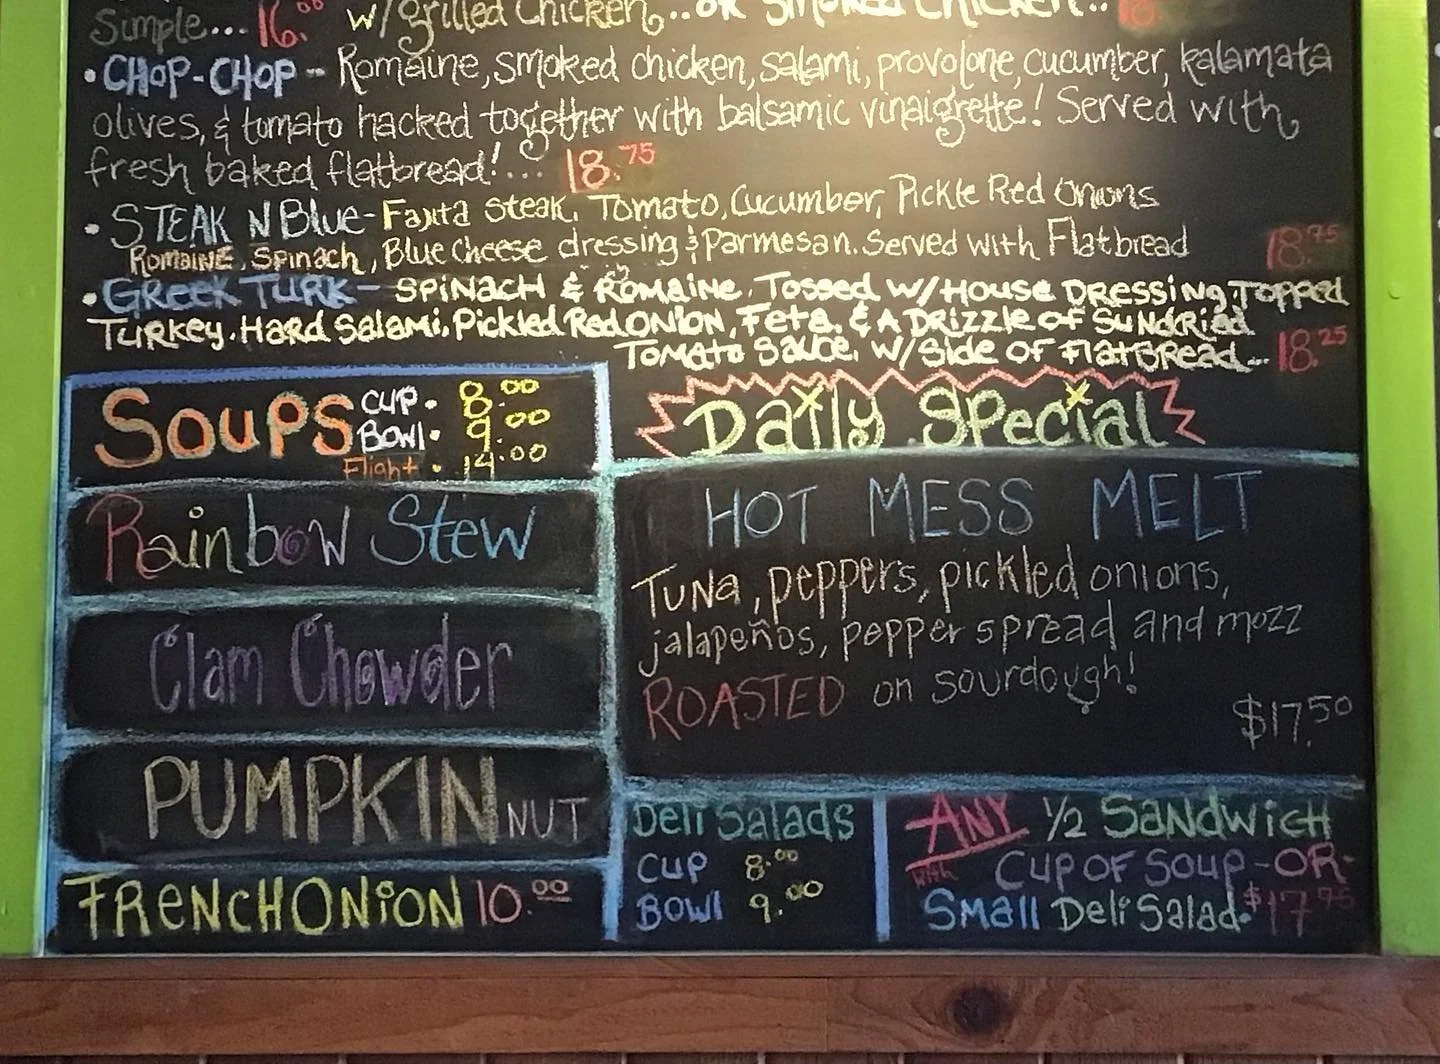 Simple... 16.00 w/grilled Chicken...OR Smoked Chicken..
• CHOP-CHOP - Romaine, smoked chicken, salami, provolone, cucumber, kalamata
olives, & tomato hacked together with balsamic vinaigrette! Served with
fresh baked flatbread!... 18.75
• STEAK N Blue - Fajita Steak, Tomato, Cucumber, Pickle Red Onions
Romaine, Spinach, Blue Cheese dressing & Parmesan. Served with Flatbread 18.95
• GREEK TURK - SPINACH & ROMAINE, Tossed w/House DRESSING, Topped
TURKEY, Hard Salami, Pickled Red ONION, Feta, & A DRIZZLE OF SUNDRIED
TOMATO SAUCE, w/Side OF FLATBREAD... 18.25
SOUPS CUP • 8.00
BOWl • 9.00
Flight • 14.00
Rainbow Stew
Clam Chowder
PUMPKIN NUT
FRENCH ONiON 10.00
Daily Special
HOT MESS MELT
Tuna, peppers, pickled onions,
jalapeños, pepper spread and mozz
ROASTED on sourdough!
$17.50
Deli Salads
CUP 8.00
BOWl 9.00
ANY 1/2 SANDWICH
with CUP OF SOUP -OR-
Small Deli Salad • $17.95